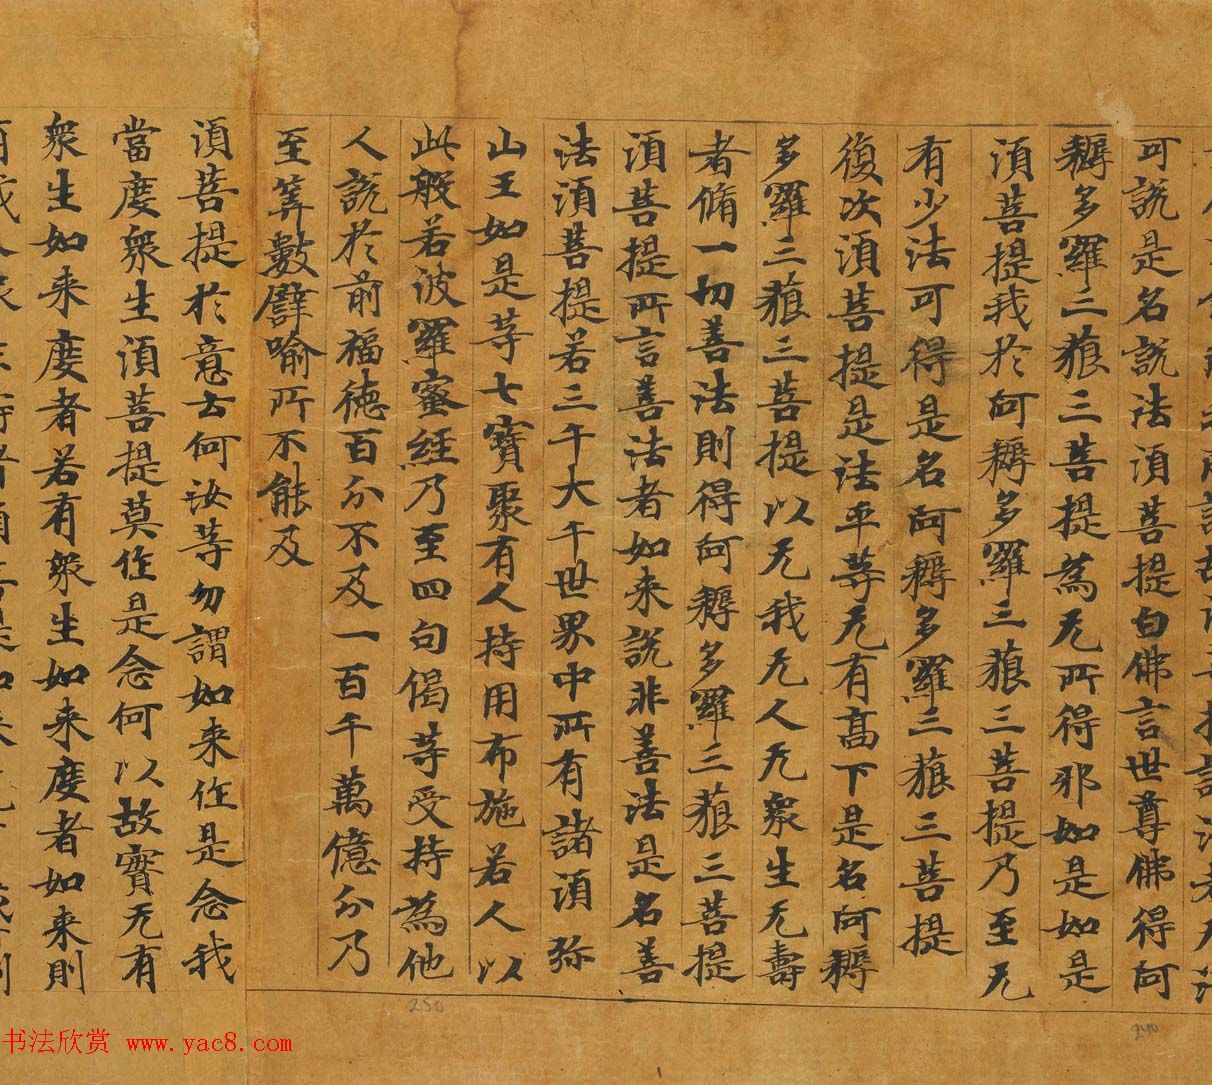 可說是名說法湏菩提白佛言世尊佛得阿
耨多羅三藐三菩提為无所得邪如是如是
湏菩提我於阿耨多羅三藐三菩提乃至无
有少法可得是名阿耨多羅三藐三菩提
復次湏菩提是法平等无有髙下是名阿耨
多羅三藐三菩提以无我无人无衆生无壽
者脩一切善法則得阿耨多羅三藐三菩提
湏菩提所言善法者如来說非善法是名善
法湏菩提若三千大千世界中所有諸湏弥
山王如是等七寶聚有人持用布施若人以
此般若波羅蜜經乃至四句偈等受持為他
人說於前福德百分不及一百千萬億分乃
至筭數譬喻所不能及
湏菩提於意云何汝等勿謂如来作是念我
當度衆生湏菩提莫作是念何以故實无有
衆生如来度者若有衆生如来度者如来則
250
240
书法欣赏 www.yac8.com